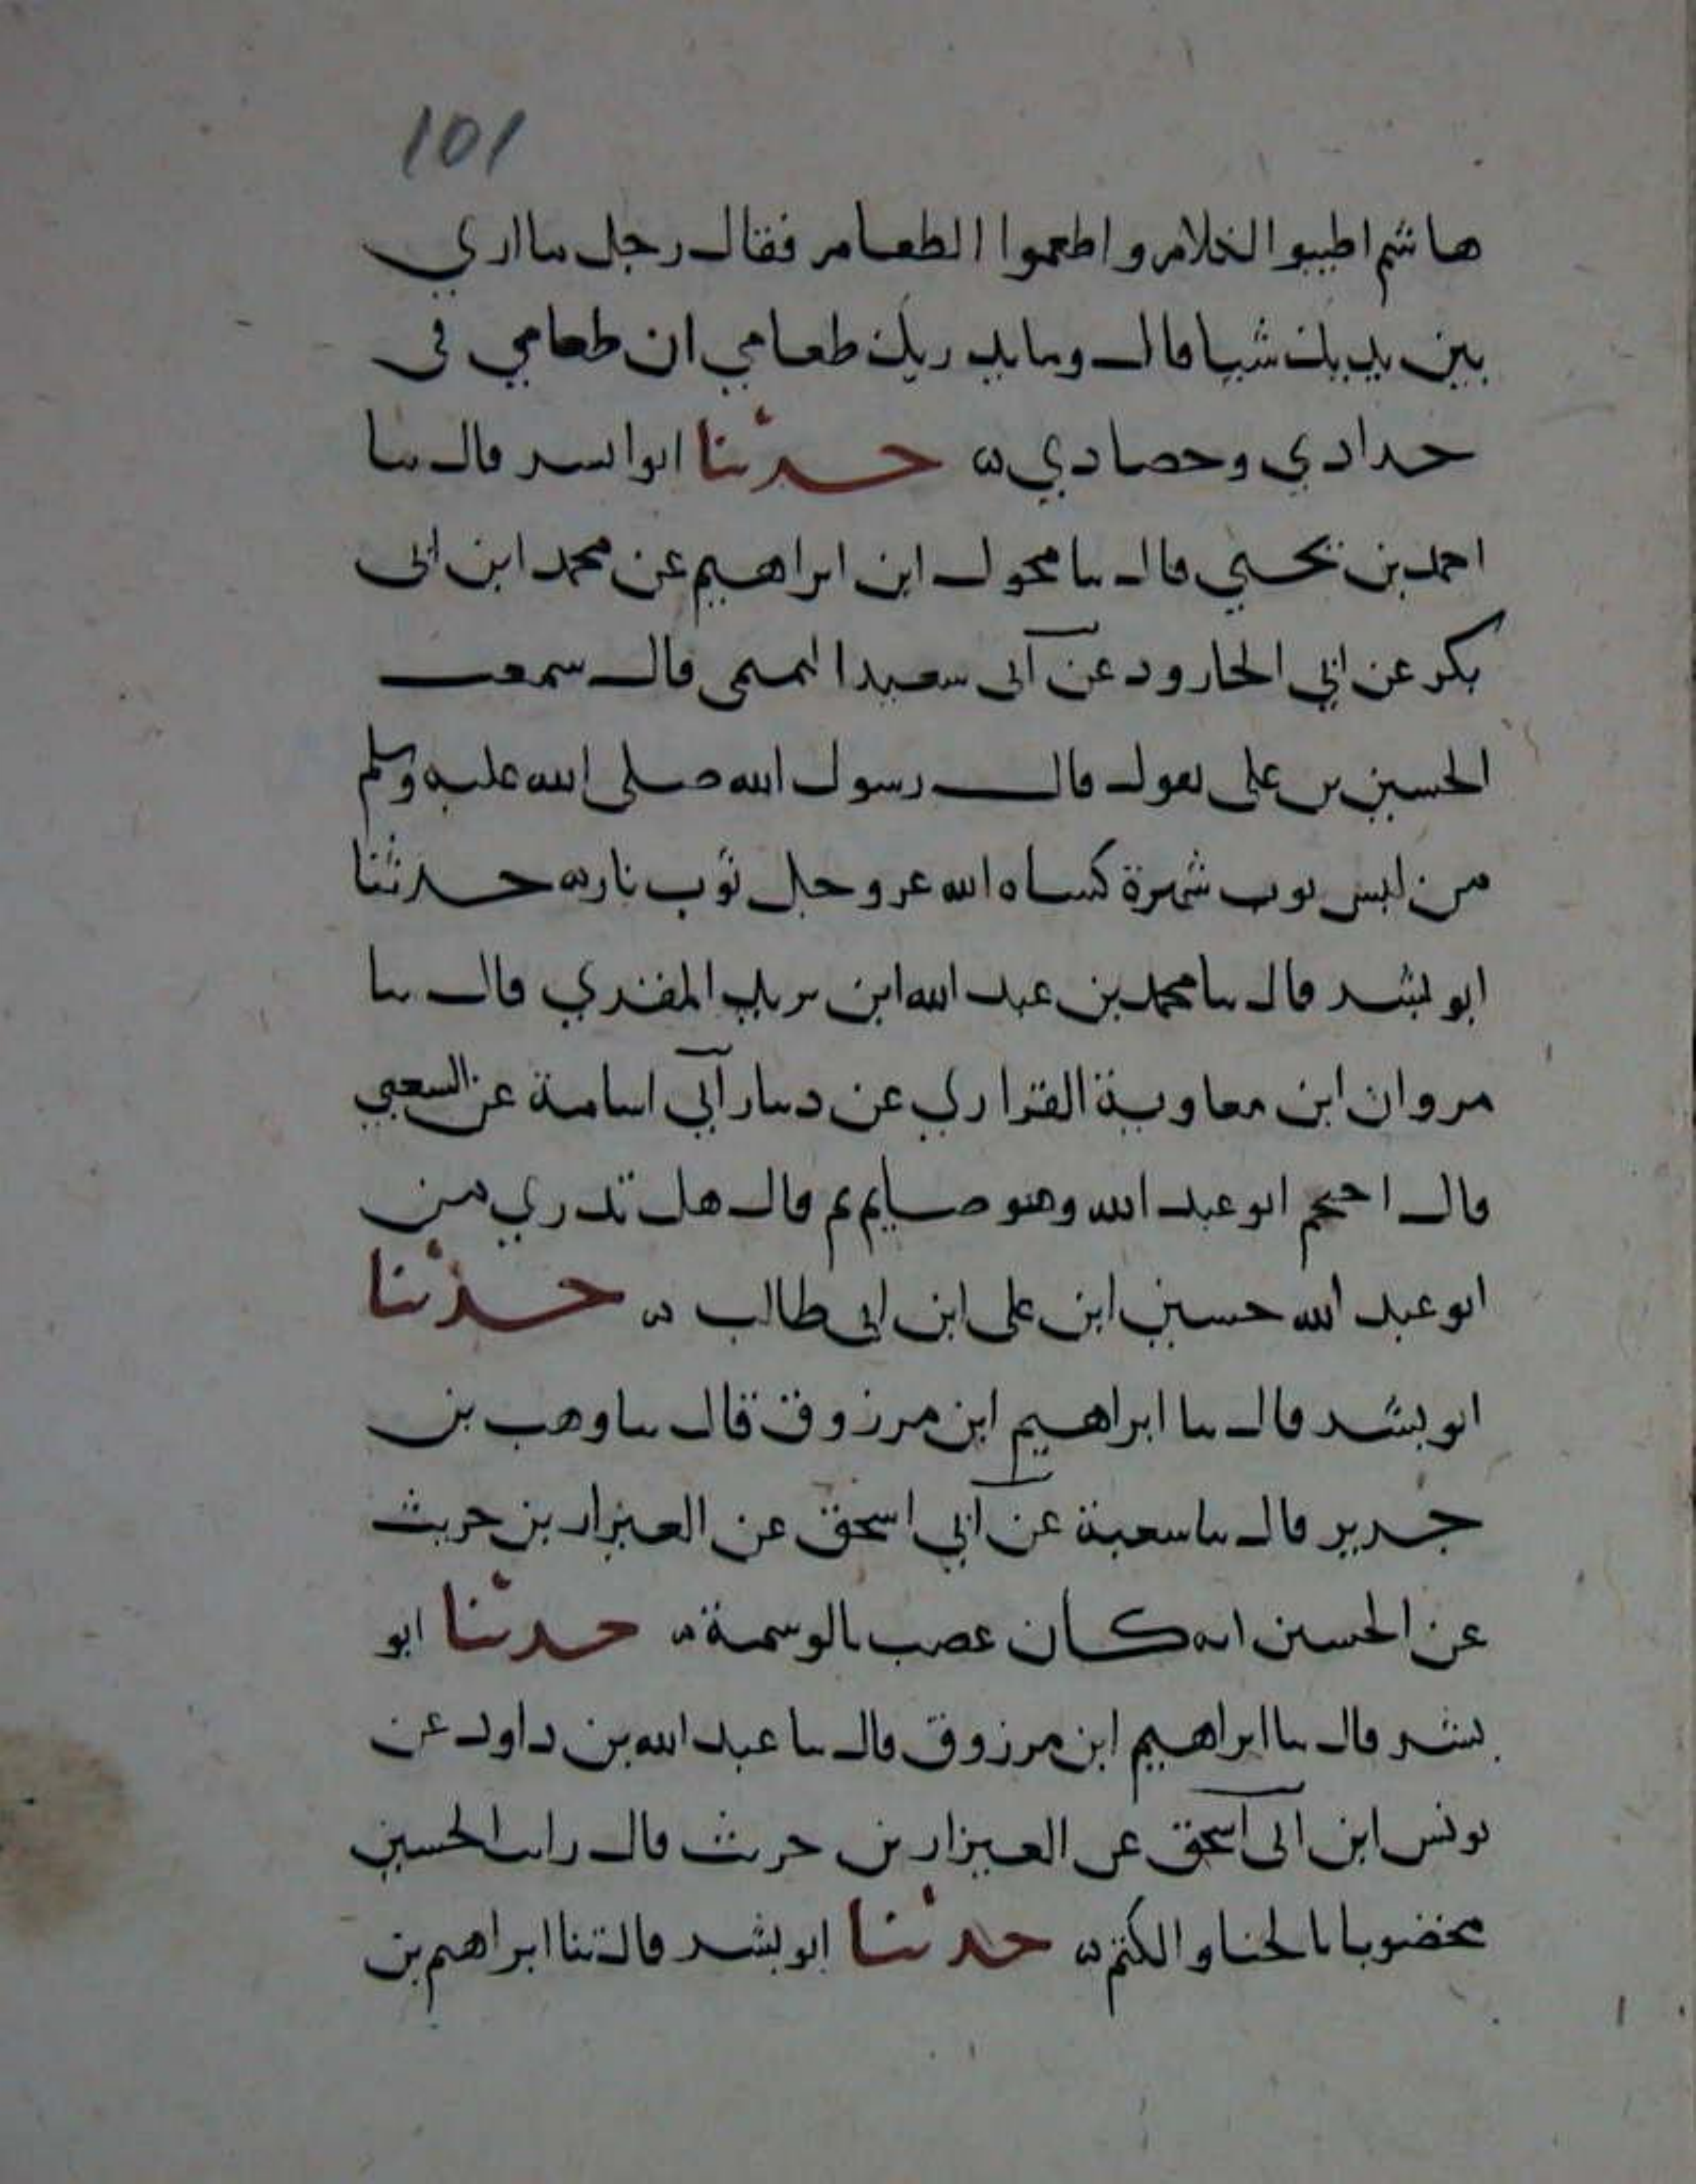 101
هاشم اطيبوا الكلام واطعموا الطعام فقال رجل ما اري
بين يديك شيا قال وما يدريك طعامي ان طعامي في
حدادي وحصادي حدثنا ابو بشر قال ثنا
احمد بن يحيي قال ثنا محول ابن ابراهيم عن محمد ابن ابي
بكر عن ابي الجارود عن ابي سعيد التميمي قال سمعت
الحسين بن علي يقول قال رسول الله صلي الله عليه وسلم
من لبس ثوب شهرة كساه الله عز وجل ثوب نار حدثنا
ابو بشر قال ثنا محمد بن عبد الله ابن يزيد المقري قال ثنا
مروان ابن معاوية الفزاري عن دينار ابي اسامة عن الشعبي
قال احتجم ابو عبد الله وهو صايم ثم قال هل تدري من
ابو عبد الله حسين ابن علي ابن ابي طالب حدثنا
ابو بشر قال ثنا ابراهيم ابن مرزوق قال ثنا وهب بن
جرير قال ثنا شعبة عن ابي اسحق عن العيزار بن حريث
عن الحسين انه كان يخضب بالوسمة حدثنا ابو
بشر قال ثنا ابراهيم ابن مرزوق قال ثنا عبد الله بن داود عن
يونس ابن ابي اسحق عن العيزار بن حريث قال رايت الحسين
مخضوبا بالحنا والكتم حدثنا ابو بشر قال ثنا ابراهيم بن